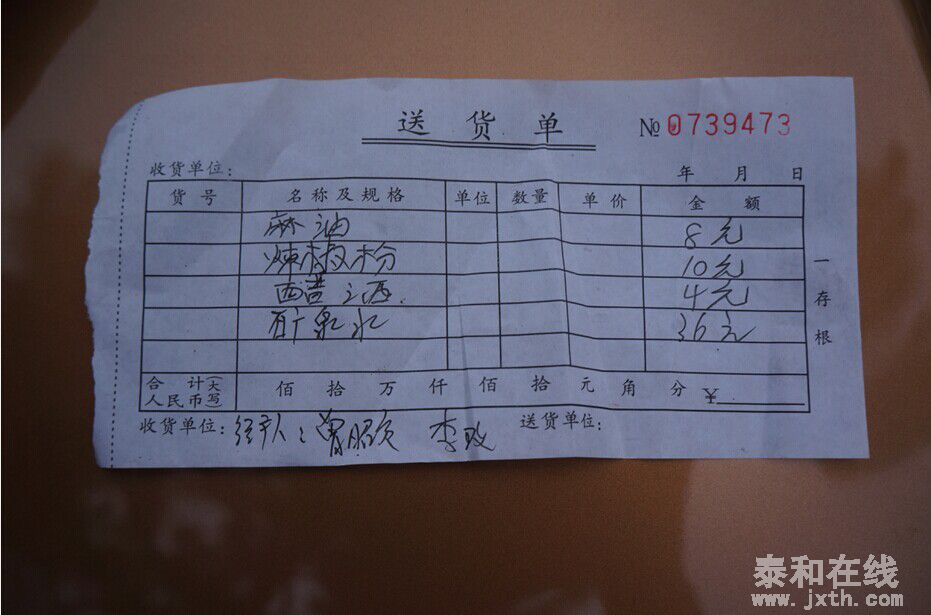 送货单 № 0739473
收货单位: 年 月 日
货号 名称及规格 单位 数量 单价 金额
麻油 8元
辣椒粉 10元
4元
矿泉水 36元
一存根
合计(大写)人民币 佰 拾 万 仟 佰 拾 元 角 分 ¥
收货单位: 经手人: 送货单位:
泰和在线
www.jxth.com